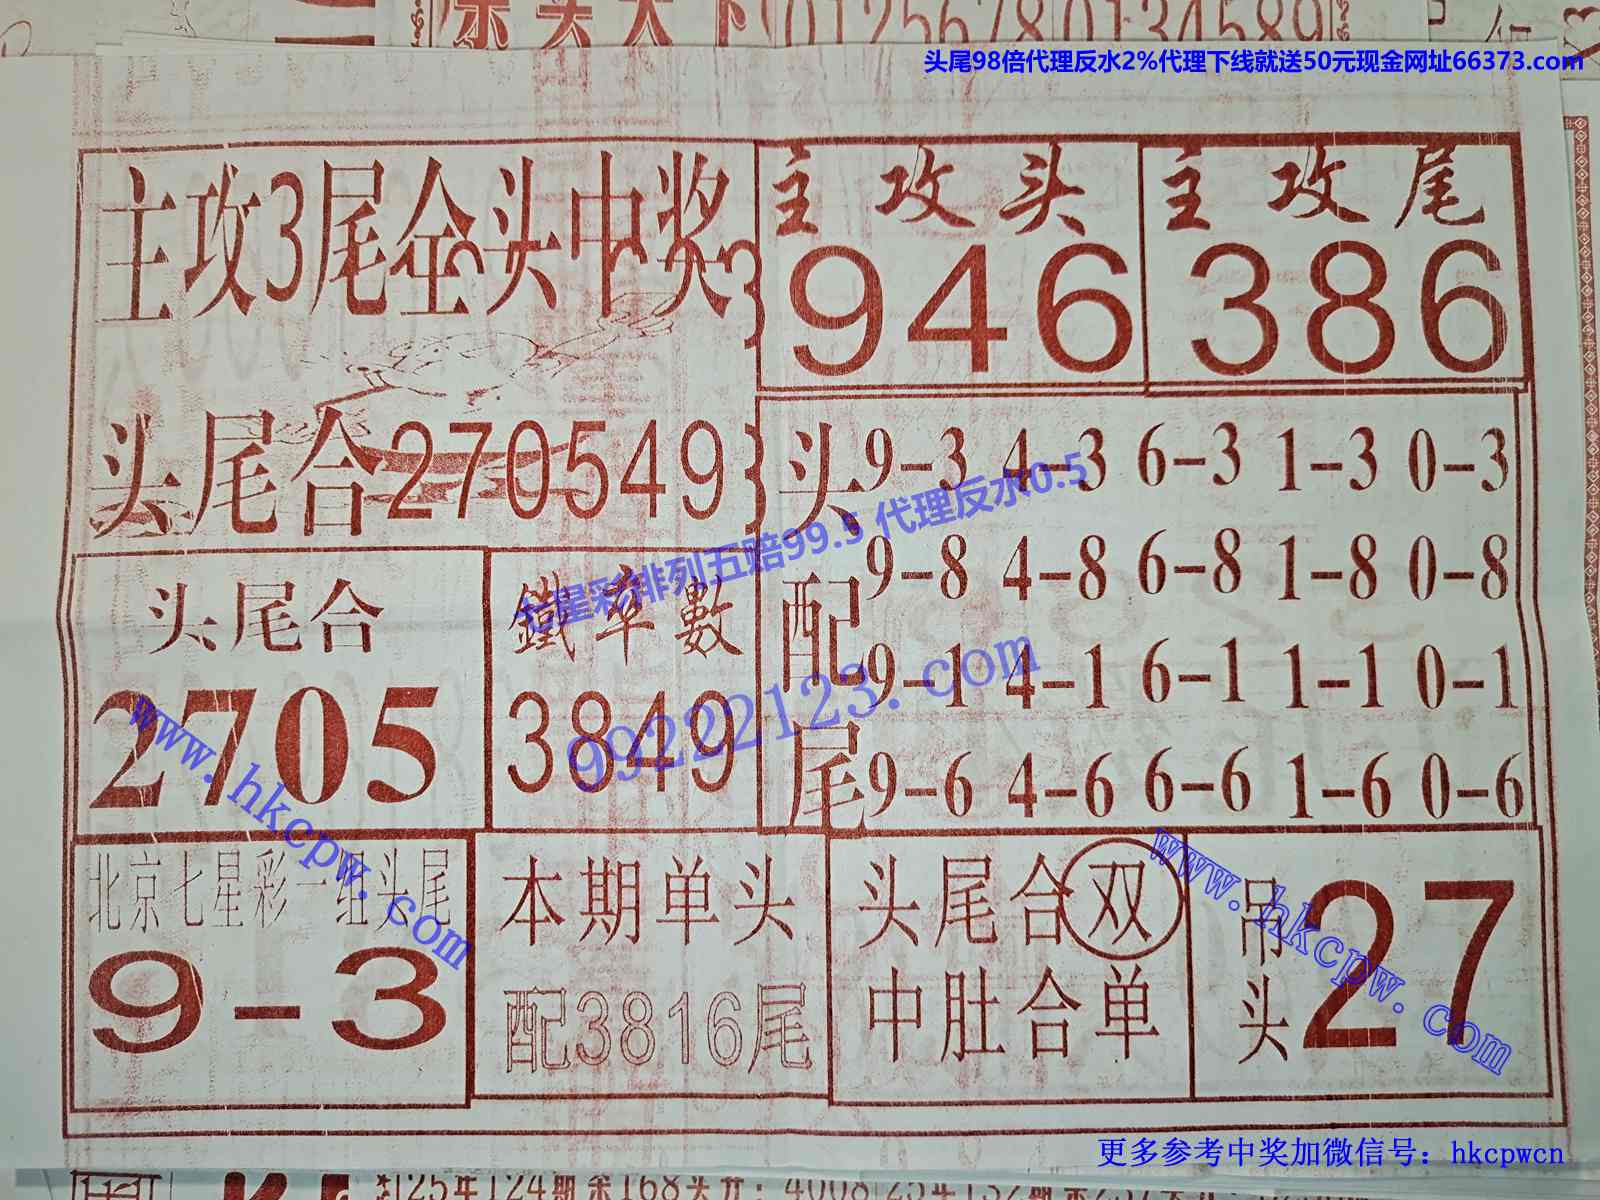 头尾98倍代理反水2%代理下线就送50元现金网址66373.com
主攻3尾全头中奖
头尾合270549
主攻头
946
主攻尾
386
头配尾
9-3 4-3 6-3 1-3 0-3
9-8 4-8 6-8 1-8 0-8
9-1 4-1 6-1 1-1 0-1
9-6 4-6 6-6 1-6 0-6
七星彩排列五赔99.5 代理反水0.5
99222123.com
头尾合
2705
鐵率數
3849
www.hkcpw.com
北京七星彩一组头尾
9-3
本期单头
配3816尾
头尾合双
中肚合单
吊头27
www.hkcpw.com
更多参考中奖加微信号：hkcpwcn